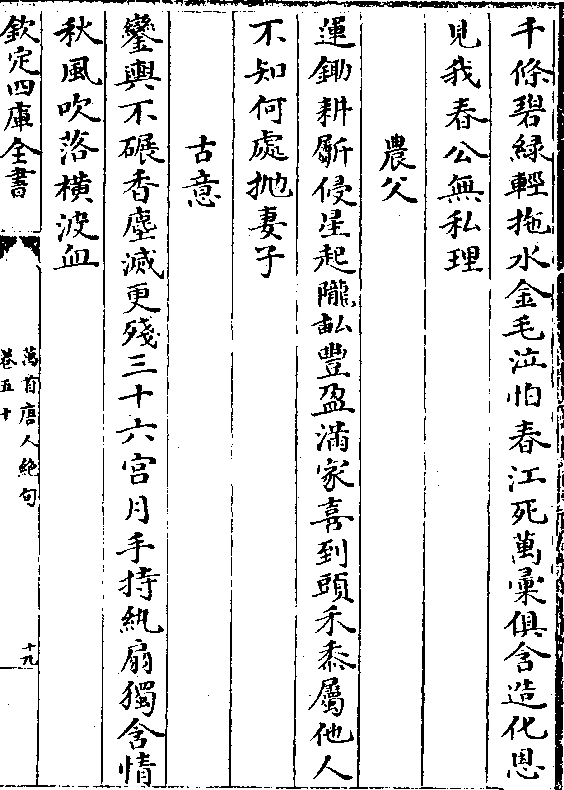 千條碧綠輕拖水金毛泣怕春江死萬彙俱含造化恩
見我春公無私理
農父
運鋤耕斸侵星起隴畝豐盈滿家喜到頭禾黍屬他人
不知何處拋妻子
古意
鑾輿不碾香塵滅更殘三十六宮月手持紈扇獨含情
秋風吹落橫波血
欽定四庫全書
萬首唐人絕句
卷五十
十九